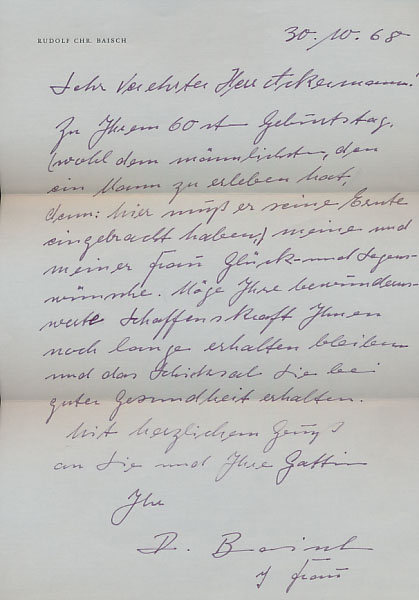 RUDOLF CHR. BAISCH
30.10.68
Sehr verehrter Herr Ackermann!
Zu Ihrem 60st Geburtstag,
(wohl dem männlichsten, den
ein Mann zu erleben hat,
denn: hier muß er seine Ernte
eingebracht haben,) meine und
meiner Frau Glück- und Segens-
wünsche. Möge Ihre bewunderns-
werte Schaffenskraft Ihnen
noch lange erhalten bleiben
und das Schicksal Sie bei
guter Gesundheit erhalten.
Mit herzlichem Gruß
an Sie und Ihre Gattin
Ihr
R. Baisch
Frau